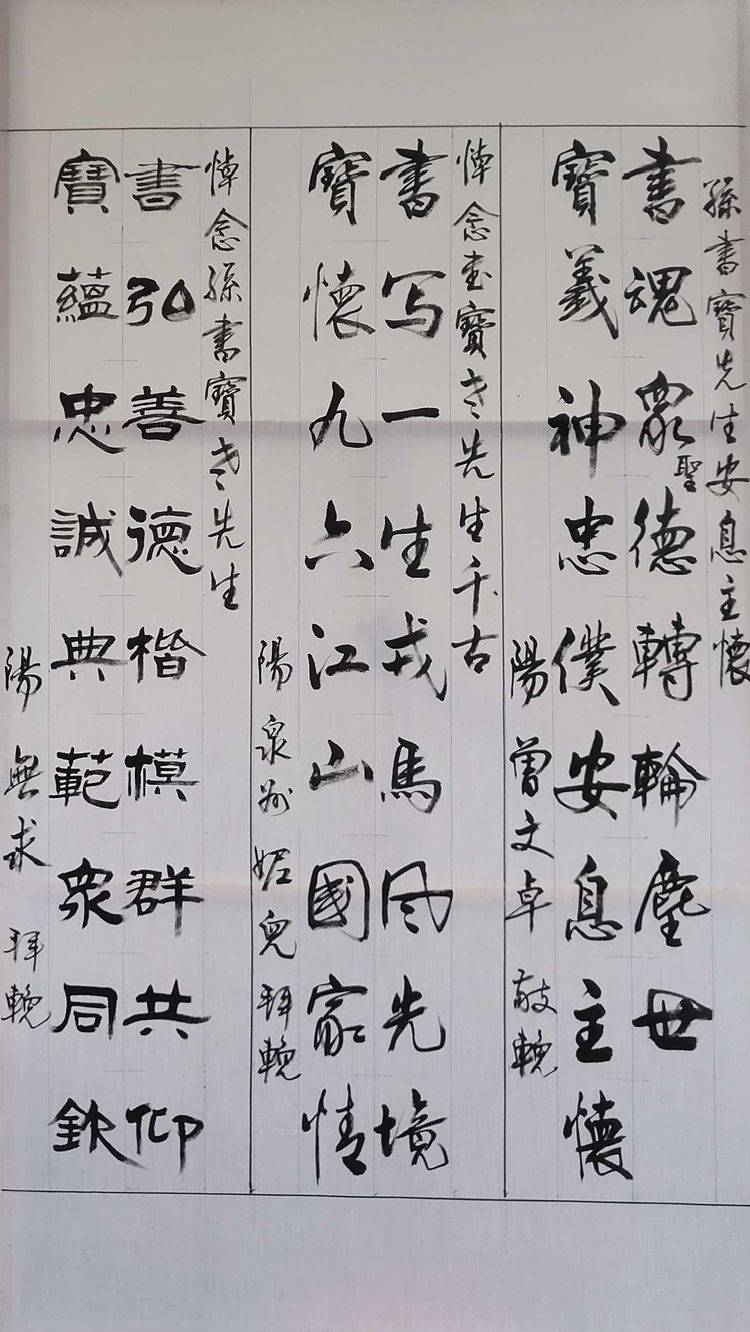 孫書寶先生安息主懷
書魂眾聖德轉輪塵世
寶義神忠僕安息主懷
陽曾文卓敬輓
悼念書寶老先生千古
書写一生戎馬风先境
寶懷九六江山國家情
陽泉兒拜輓
悼念孫書寶老先生
書弘善德楷模群共仰
寶蘊忠誠典範眾同欽
陽無求拜輓